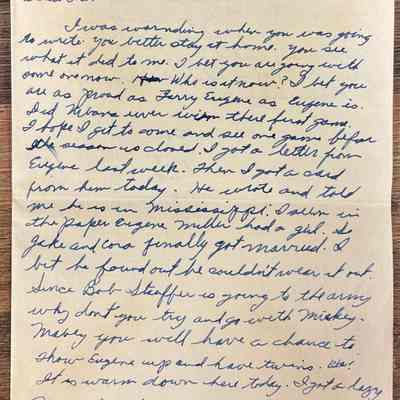 I was wornding when you was going
to write. you better stay at home. you see
what it did to me. I bet you are going with
some one now. Who is it now? I bet you
are as proad as Ferry Eugene as Eugene is.
Did Means ever win there first game.
I hope I get to come and see one game befor
the season is closed. I got a letter from
Eugene last week. Then I got a card
from him today. He wrote and told
me he is in Mississippi. I seen in
the paper Eugene Miller had a girl. So
Jake and Cora finally got married. I
bet he found out he couldn't wear it out.
Since Bob Stauffer is going to the army
why don't you try and go with Mickey.
Mabey you will have a chance to
show Eugene up and have twins. Ha!
It is warm down here today. I got a lazy